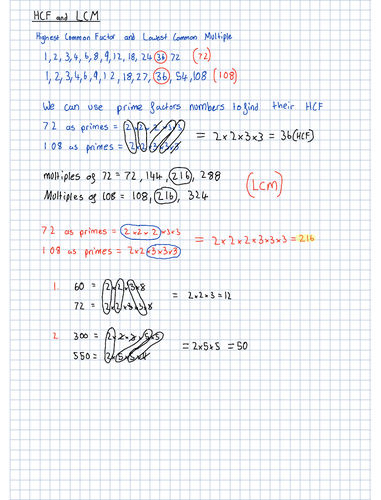 HCF and LCM
Highest Common Factor and Lowest Common Multiple
1, 2, 3, 4, 6, 8, 9, 12, 18, 24 36 72 (72)
1, 2, 3, 4, 6, 9, 12, 18, 27, 36, 54, 108 (108)
We can use prime factors numbers to find their HCF
72 as primes = 2×2×2×3×3
108 as primes = 2×2×3×3×3
= 2×2×3×3 = 36 (HCF)
multiples of 72 = 72, 144, 216, 288
Multiples of 108 = 108, 216, 324
(LCM)
72 as primes = 2×2×2×3×3
108 as primes = 2×2×3×3×3
= 2×2×2×3×3×3 = 216
1. 60 = 2×2×3×
72 = 2×2×3×3×
= 2×2×3 = 12
2. 300 = 2×2×3×5×5
550 = 2×5×5×
= 2×5×5 = 50